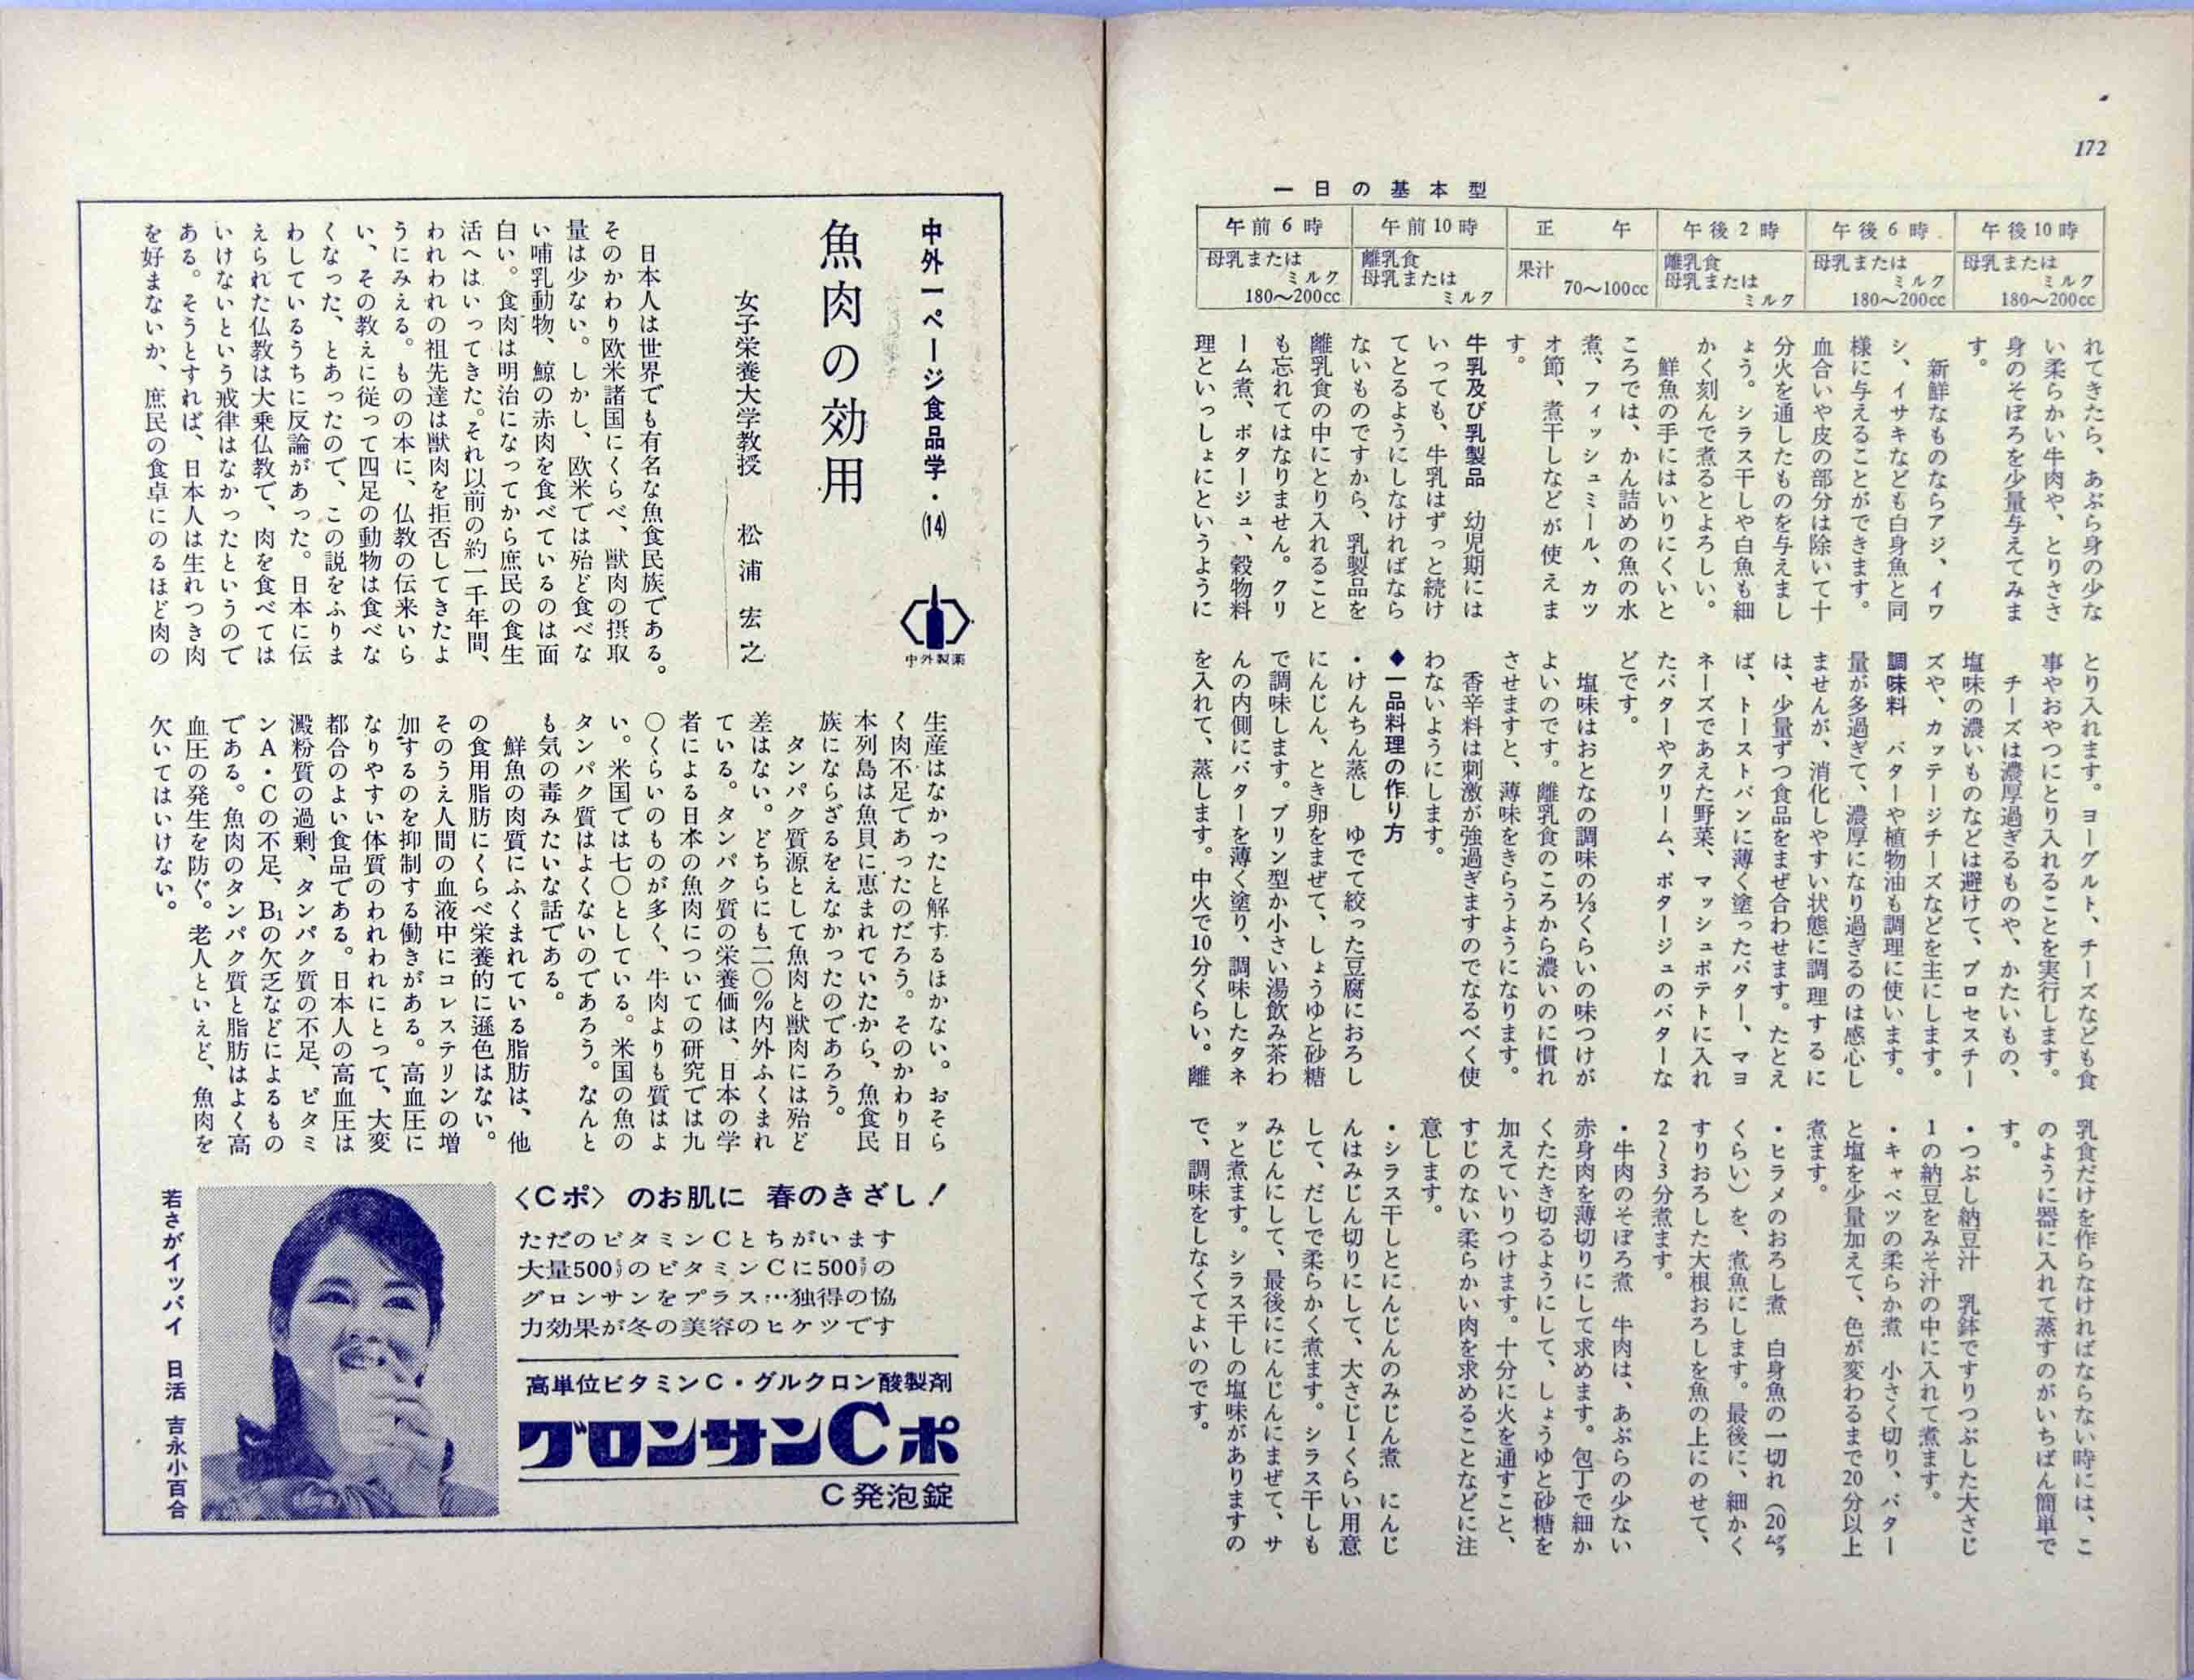 172
一日の基本型
午前6時
午前10時
正　午
午後2時
午後6時
午後10時
母乳または
ミルク
180〜200cc
離乳食
母乳または
ミルク
果汁
70〜100cc
離乳食
母乳または
ミルク
母乳または
ミルク
180〜200cc
母乳または
ミルク
180〜200cc
れてきたら、あぶら身の少な
い柔らかい牛肉や、とりささ
身のそぼろを少量与えてみま
す。
新鮮なものならアジ、イワ
シ、イサキなども白身魚と同
様に与えることができます。
血合いや皮の部分は除いて十
分火を通したものを与えまし
ょう。シラス干しや白魚も細
かく刻んで煮るとよろしい。
鮮魚の手にはいりにくいと
ころでは、かん詰めの魚の水
煮、フィッシュミール、カツ
オ節、煮干しなどが使えま
す。
牛乳及び乳製品　幼児期には
いっても、牛乳はずっと続け
てとるようにしなければなら
ないものですから、乳製品を
離乳食の中にとり入れること
も忘れてはなりません。クリ
ーム煮、ポタージュ、穀物料
理といっしょにというように
とり入れます。ヨーグルト、チーズなども食
事やおやつにとり入れることを実行します。
チーズは濃厚過ぎるものや、かたいもの、
塩味の濃いものなどは避けて、プロセスチー
ズや、カッテージチーズなどを主にします。
調味料　バターや植物油も調理に使います。
量が多過ぎて、濃厚になり過ぎるのは感心し
ませんが、消化しやすい状態に調理するに
は、少量ずつ食品をまぜ合わせます。たとえ
ば、トーストパンに薄く塗ったバター、マヨ
ネーズであえた野菜、マッシュポテトに入れ
たバターやクリーム、ポタージュのバターな
どです。
塩味はおとなの調味の⅓くらいの味つけが
よいのです。離乳食のころから濃いのに慣れ
させますと、薄味をきらうようになります。
香辛料は刺激が強過ぎますのでなるべく使
わないようにします。
◆一品料理の作り方
・けんちん蒸し　ゆでて絞った豆腐におろし
にんじん、とき卵をまぜて、しょうゆと砂糖
で調味します。プリン型か小さい湯飲み茶わ
んの内側にバターを薄く塗り、調味したタネ
を入れて、蒸します。中火で10分くらい。離
乳食だけを作らなければならない時には、こ
のように器に入れて蒸すのがいちばん簡単で
す。
・つぶし納豆汁　乳鉢ですりつぶした大さじ
1の納豆をみそ汁の中に入れて煮ます。
・キャベツの柔らか煮　小さく切り、バター
と塩を少量加えて、色が変わるまで20分以上
煮ます。
・ヒラメのおろし煮　白身魚の一切れ（20㌘
くらい）を、煮魚にします。最後に、細かく
すりおろした大根おろしを魚の上にのせて、
2〜3分煮ます。
・牛肉のそぼろ煮　牛肉は、あぶらの少ない
赤身肉を薄切りにして求めます。包丁で細か
くたたき切るようにして、しょうゆと砂糖を
加えていりつけます。十分に火を通すこと、
すじのない柔らかい肉を求めることなどに注
意します。
・シラス干しとにんじんのみじん煮　にんじ
んはみじん切りにして、大さじ1くらい用意
して、だしで柔らかく煮ます。シラス干しも
みじんにして、最後ににんじんにまぜて、サ
ッと煮ます。シラス干しの塩味がありますの
で、調味をしなくてよいのです。
中外一ページ食品学・⒁
中外製薬
魚肉の効用
女子栄養大学教授　松浦宏之
日本人は世界でも有名な魚食民族である。
そのかわり欧米諸国にくらべ、獣肉の摂取
量は少ない。しかし、欧米では殆ど食べな
い哺乳動物、鯨の赤肉を食べているのは面
白い。食肉は明治になってから庶民の食生
活へはいってきた。それ以前の約一千年間、
われわれの祖先達は獣肉を拒否してきたよ
うにみえる。ものの本に、仏教の伝来いら
い、その教えに従って四足の動物は食べな
くなった、とあったので、この説をふりま
わしているうちに反論があった。日本に伝
えられた仏教は大乗仏教で、肉を食べては
いけないという戒律はなかったというので
ある。そうとすれば、日本人は生れつき肉
を好まないか、庶民の食卓にのるほど肉の
生産はなかったと解するほかない。おそら
く肉不足であったのだろう。そのかわり日
本列島は魚貝に恵まれていたから、魚食民
族にならざるをえなかったのであろう。
タンパク質源として魚肉と獣肉には殆ど
差はない。どちらにも二〇％内外ふくまれ
ている。タンパク質の栄養価は、日本の学
者による日本の魚肉についての研究では九
〇くらいのものが多く、牛肉よりも質はよ
い。米国では七〇としている。米国の魚の
タンパク質はよくないのであろう。なんと
も気の毒みたいな話である。
鮮魚の肉質にふくまれている脂肪は、他
の食用脂肪にくらべ栄養的に遜色はない。
そのうえ人間の血液中にコレステリンの増
加するのを抑制する働きがある。高血圧に
なりやすい体質のわれわれにとって、大変
都合のよい食品である。日本人の高血圧は
澱粉質の過剰、タンパク質の不足、ビタミ
ンA・Cの不足、B₁の欠乏などによるもの
である。魚肉のタンパク質と脂肪はよく高
血圧の発生を防ぐ。老人といえど、魚肉を
欠いてはいけない。
〈Cポ〉のお肌に 春のきざし！
ただのビタミンCとちがいます
大量500㍉のビタミンCに500㍉の
グロンサンをプラス…独得の協
力効果が冬の美容のヒケツです
高単位ビタミンC・グルクロン酸製剤
グロンサンCポ
C発泡錠
若さがイッパイ　日活　吉永小百合